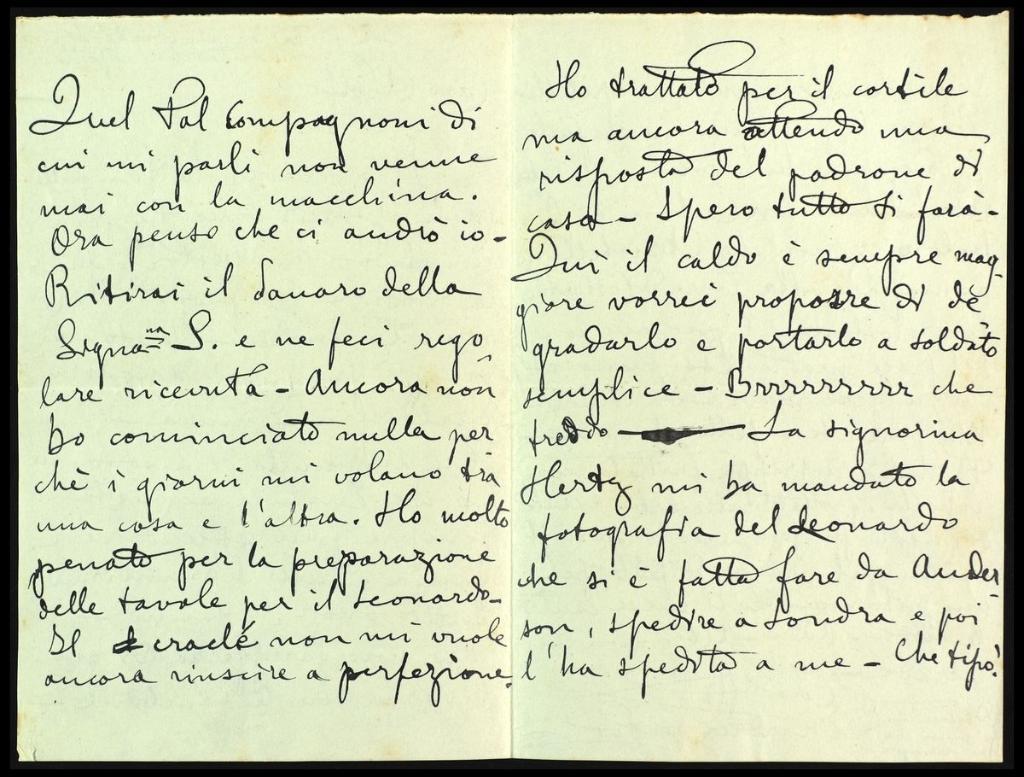 Quel tal Compagnoni di
cui mi parli non venne
mai con la macchina.
Ora penso che ci andrò io -
Ritirai il danaro della
Signa na S. e ne feci rego
lare ricevuta - Ancora non
ho cominciato nulla per
chè i giorni mi volano tra
una cosa e l'altra. Ho molto
penato per la preparazione
delle tavole per il Leonardo -
Il craclé non mi vuole
ancora riuscire a perfezione.
Ho trattato per il cortile
ma ancora attendo una
risposta del padrone di
casa - Spero tutto si farà -
Qui il caldo è sempre mag-
giore vorrei proporre di de
gradarlo e portarlo a soldato
semplice - Brrrrrrrrrr che
freddo — La signorina
Hertz mi ha mandato la
fotografia del Leonardo
che si è fatta fare da Ander-
son, spedire a Londra e poi
l'ha spedita a me - Che tipo!